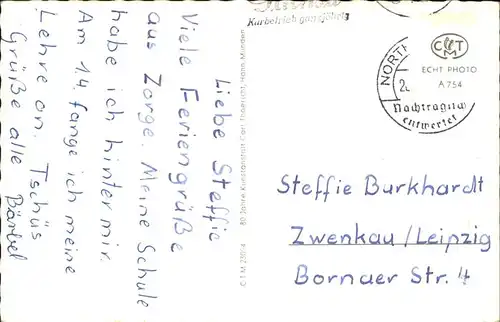 Liebe Steffie
Viele Feriengrüße
aus Zorge. Meine Schule
habe ich hinter mir.
Am 1.4. fange ich meine
Lehre an. Tschüs
Grüße alle Bärbel
80 Jahre Kunstanstalt Carl Thoericht, Hann. Münden
CTM 230/4
Kurbetrieb ganzjährig
NORTH
Nachträglich
entwertet
CTM
ECHT PHOTO
A 754
Steffie Burkhardt
Zwenkau/Leipzig
Bornaer Str. 4